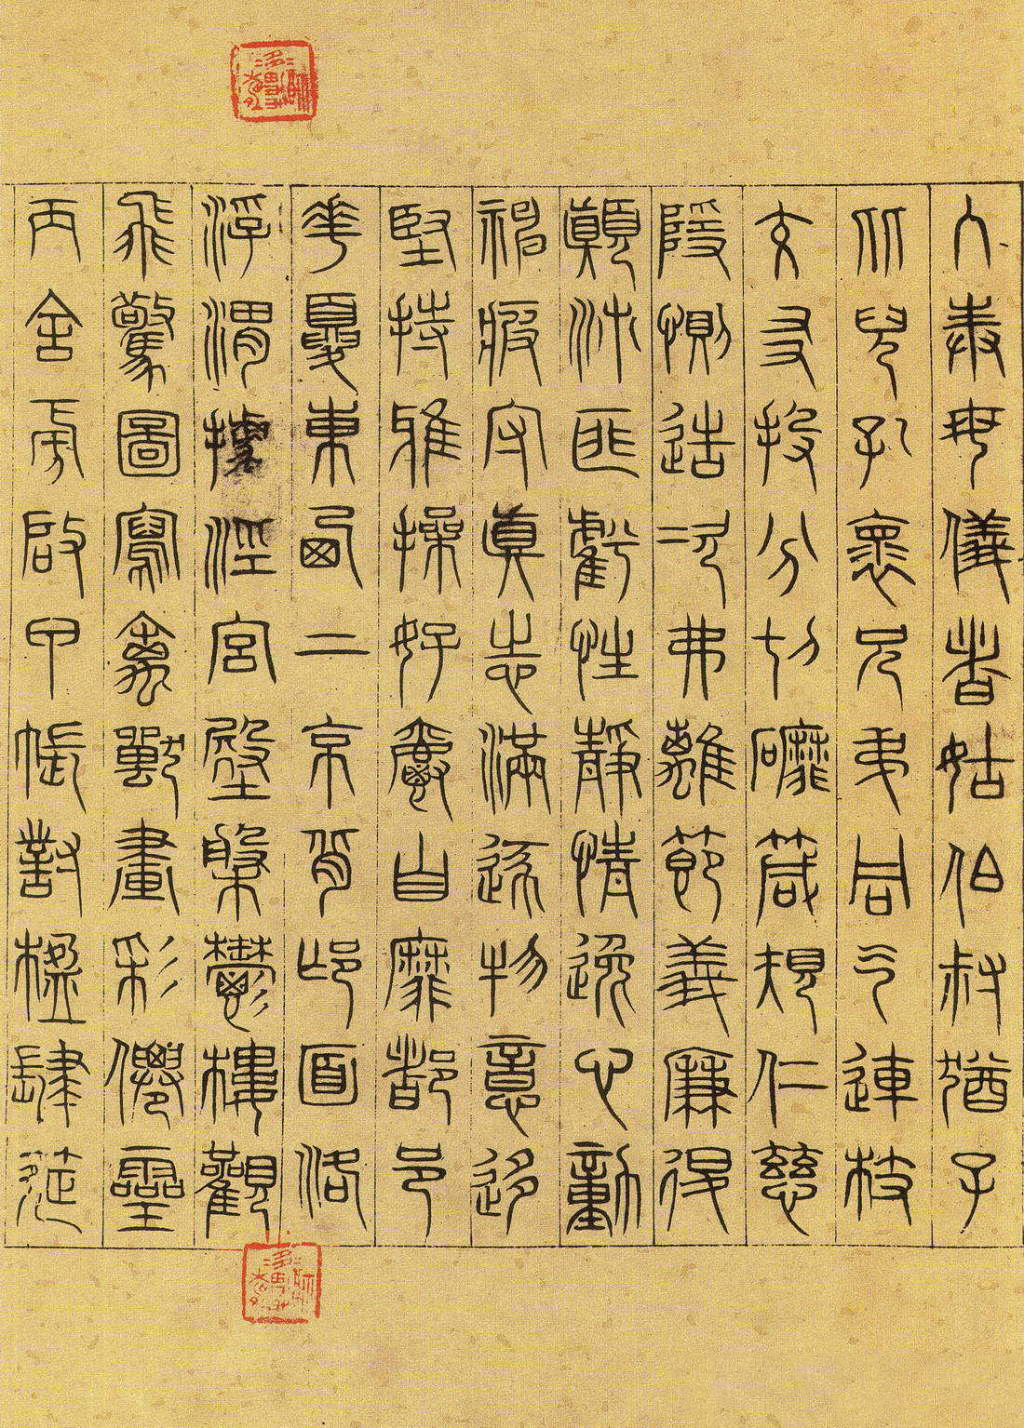 入奉母儀者姑伯叔猶子
比兒孔懷兄弟同气連枝
交友投分切磨箴規仁慈
隱惻造次弗離節義廉退
顛沛匪虧性靜情逸心動
神疲守真志滿逐物意移
堅持雅操好爵自靡都邑
華夏東西二京背邙面洛
浮渭據涇宮殿盤鬱樓觀
飛驚圖寫禽獸畫彩僊靈
丙舍傍啟甲帳對楹肆筵